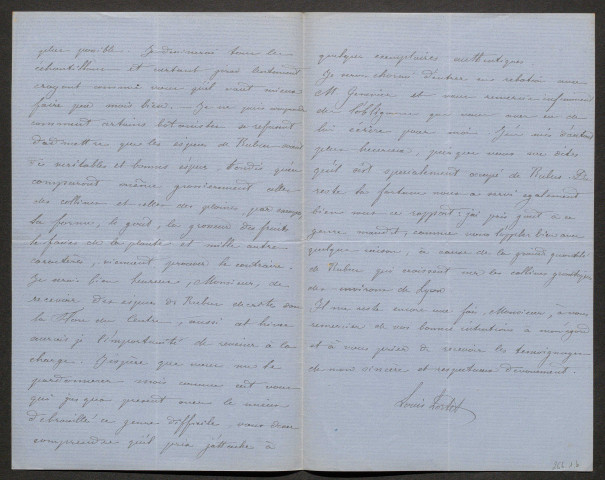 plus possible. Je dessinerai tous les
échantillons et surtout
croyant comme vous qu'il vaut mieux
faire peu mais bien. — Je ne puis comprendre
comment certains botanistes se refusent
d'admettre que les espèces de Rubus sont
de véritables et bonnes espèces, tandis qu'en
comparant même grossièrement celles
des collines et celles des plaines, par exemple,
la forme, le goût, la grosseur des fruits
le faciès de la plante et mille autres
caractères, viennent prouver le contraire.
Je serai bien heureux, Monsieur, de
recevoir des espèces de Rubus décrites dans
la Flore du Centre, aussi cet hiver
aurai je l'importunité de revenir à la
charge. J'espère que vous me le
pardonnerez mais comme c'est vous
qui jusqu'à présent avez le mieux
débrouillé ce genre difficile, vous devez
comprendre quel prix j'attache à
quelques exemplaires authentiques.
Je serai charmé d'entrer en relation avec
M. Genevier et vous remercie infiniment
de l'obligeance que vous avez eu de
lui écrire pour moi. J'en suis d'autant
plus heureux, puisque vous me dites
qu'il s'est spécialement occupé de Rubus. Du
reste la fortune nous a servi également
bien sous ce rapport; j'ai pris goût à ce
genre maudit, comme vous l'appelez bien avec
quelque raison, à cause de la grande quantité
de Rubus qui croissent sur les collines granitiques
des environs de Lyon.
Il me reste encore une fois, Monsieur, à vous
remercier de vos bonnes intentions à mon égard
et à vous prier de recevoir les témoignages
de mon sincère et respectueux dévouement.
Louis